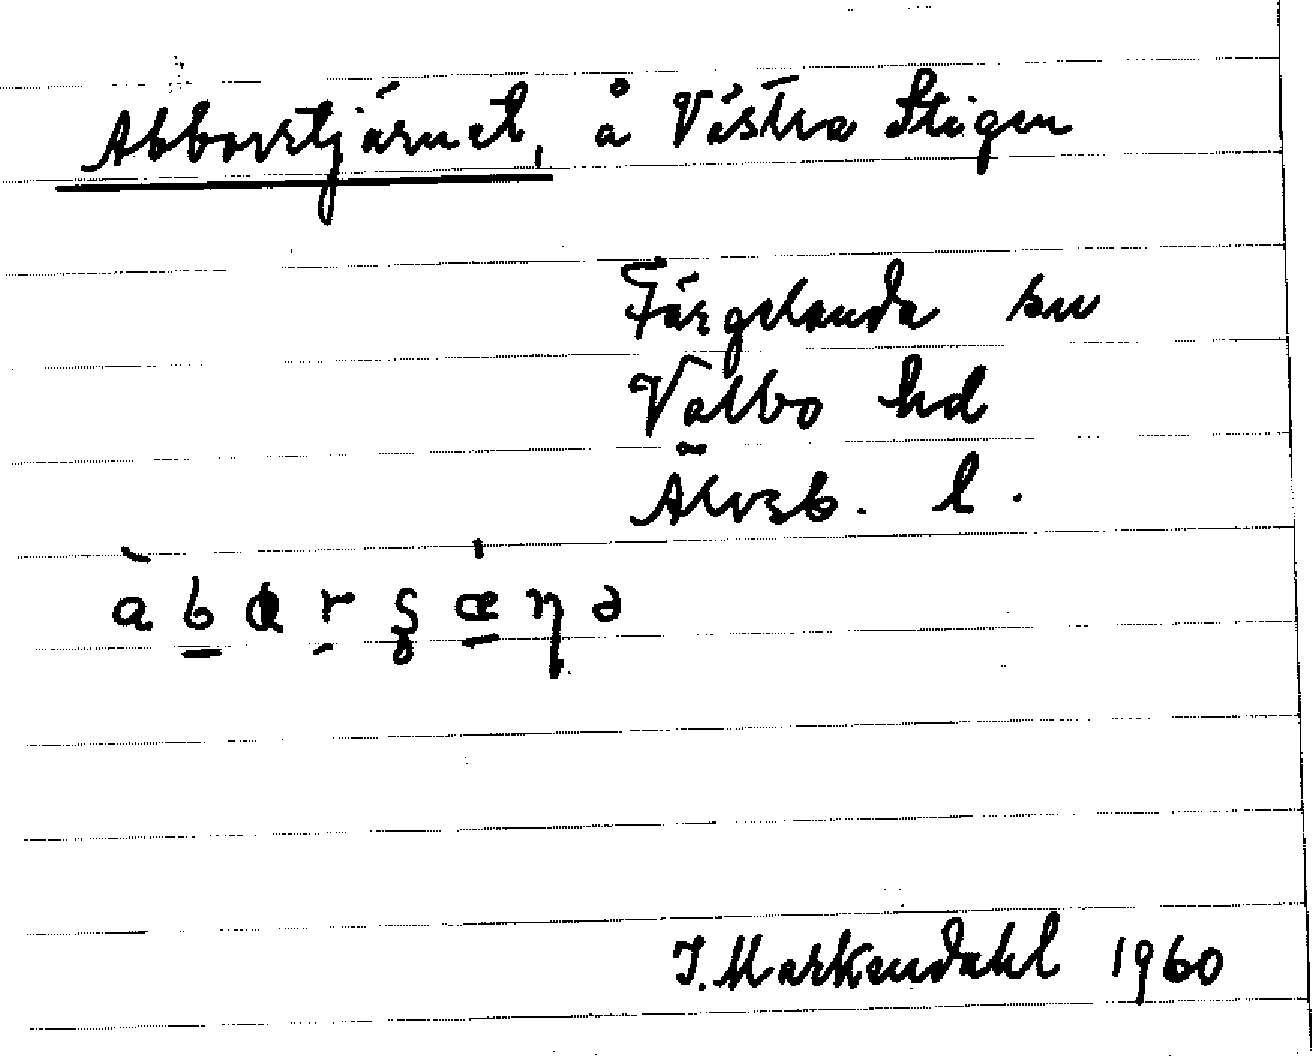 Abborrtjärnet, å Västra Stigen
Färgelanda sn
Valbo hd
Älvsb. l.
I. Markendahl 1960